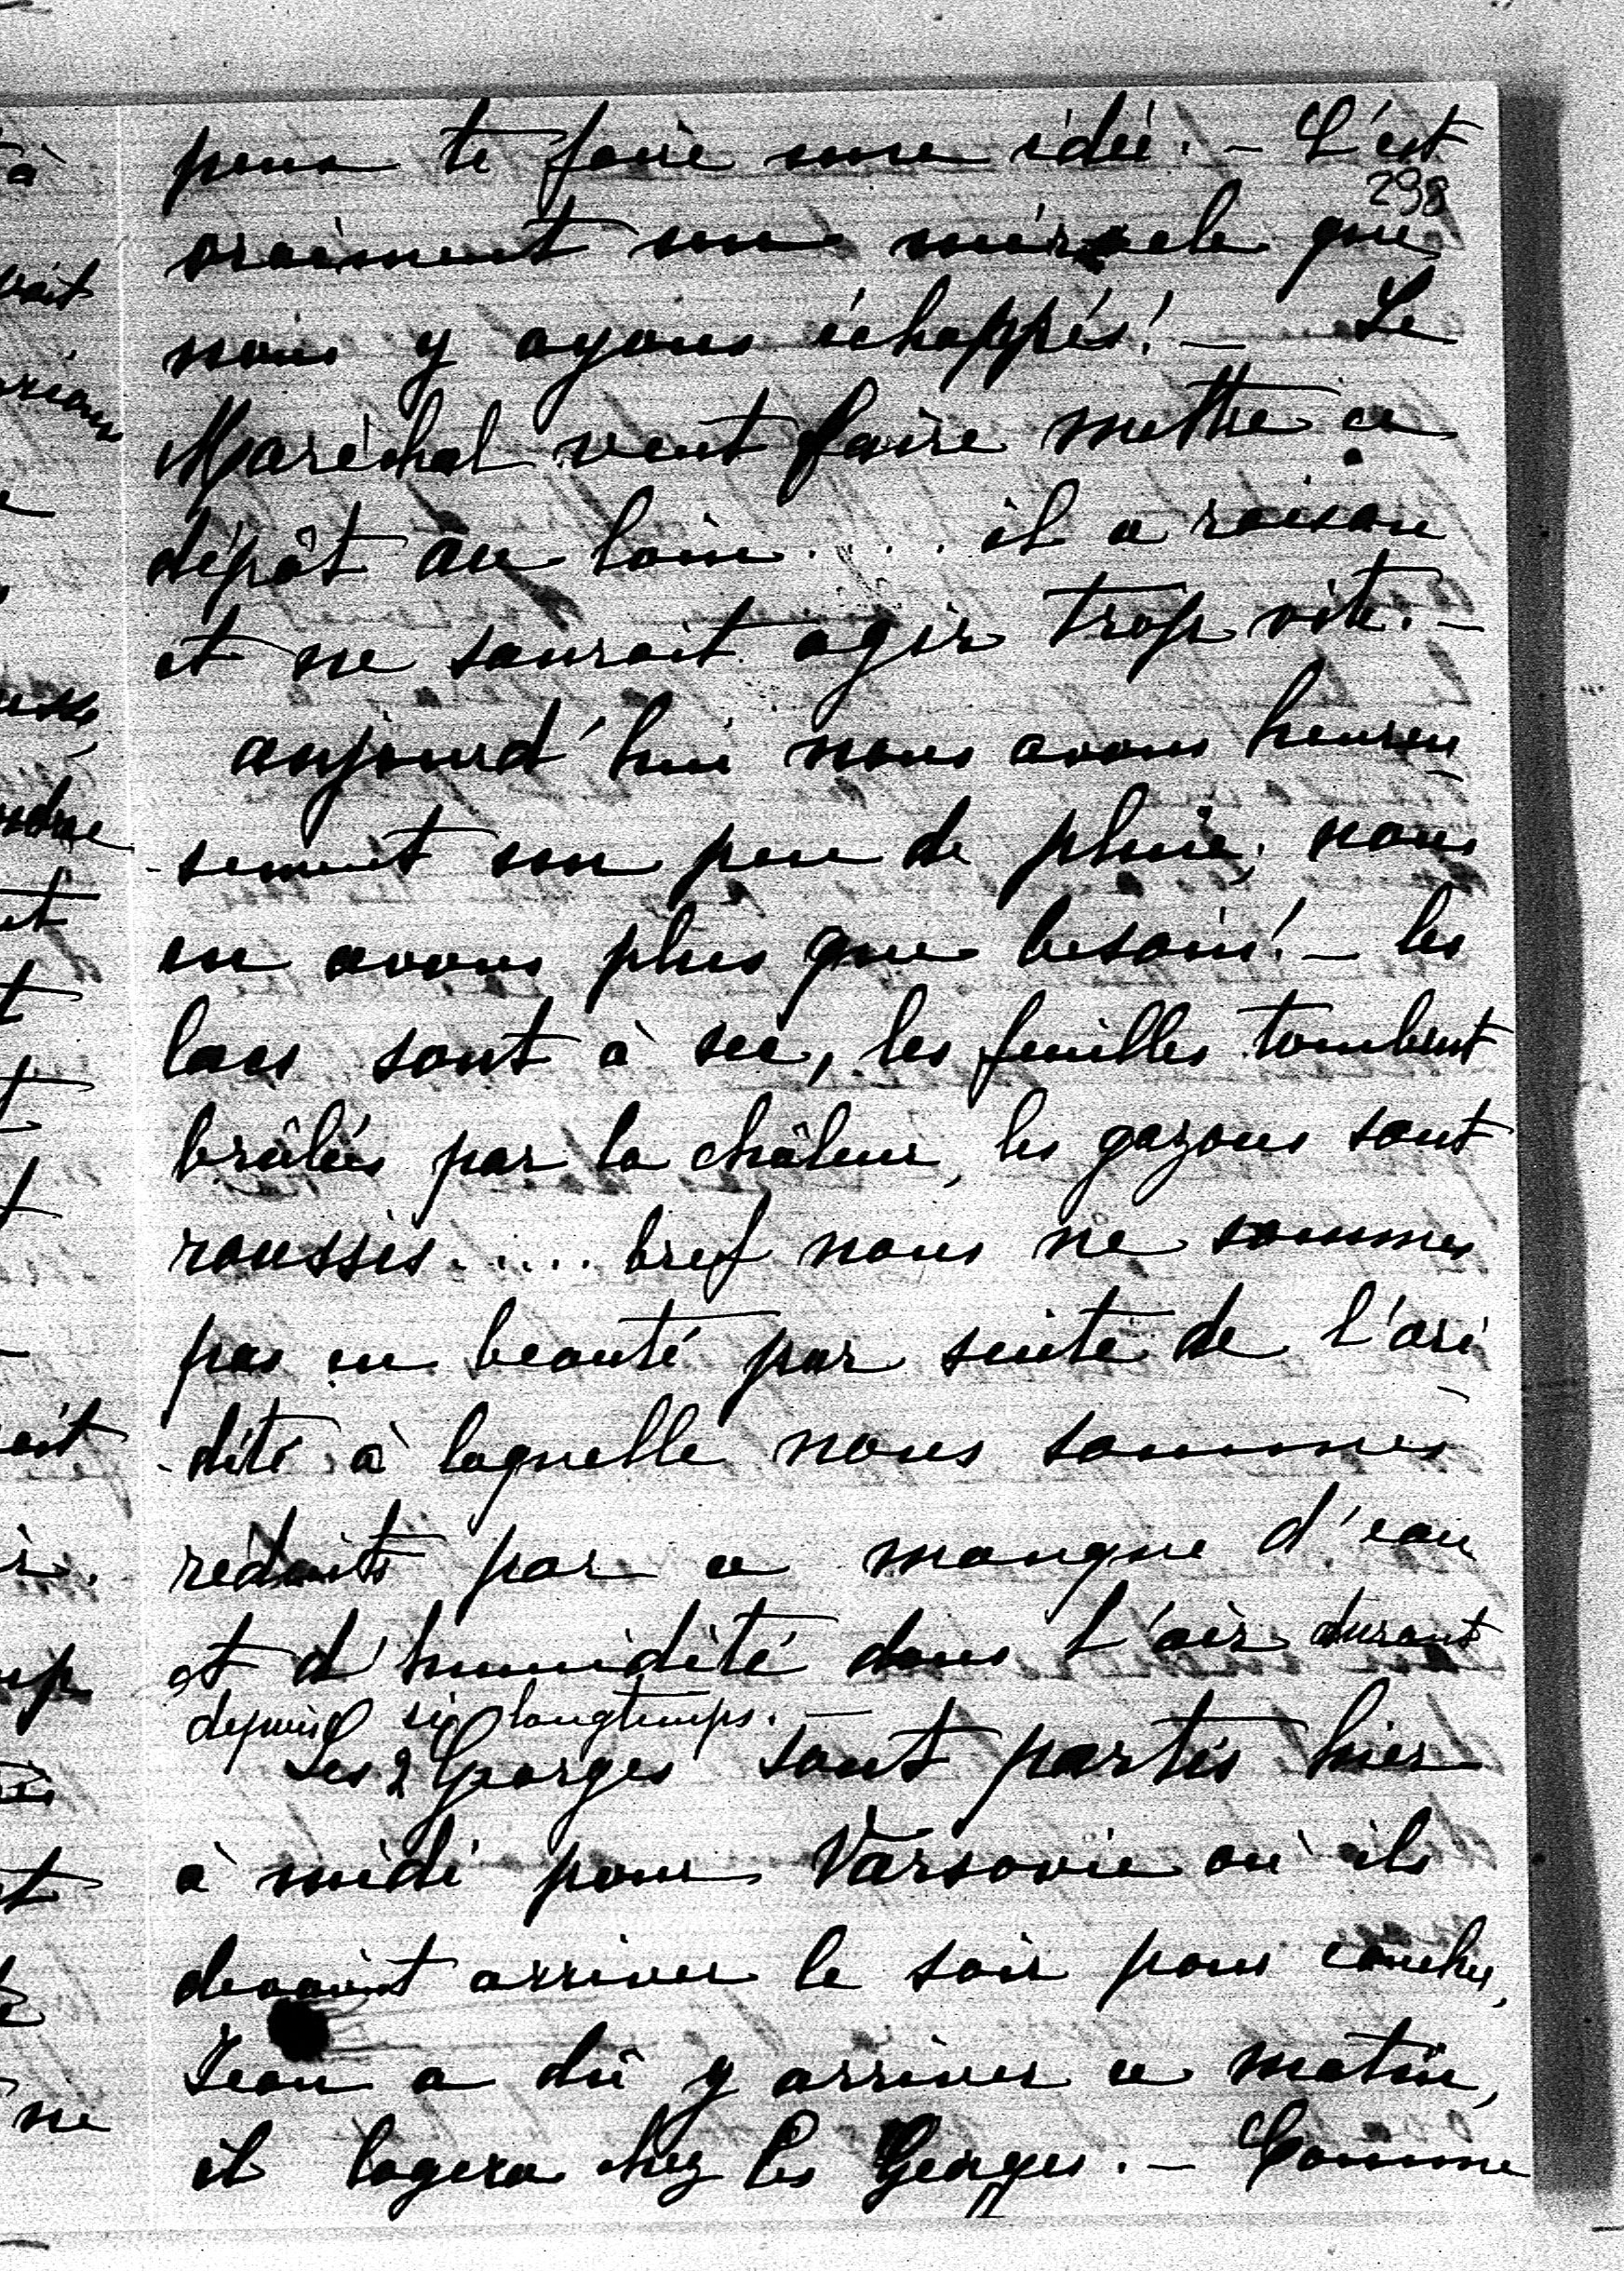 peux te faire une idée. - C'est
298
vraiment un miracle que
nous y ayons échappés! - Le
Maréchal veut faire mettre ce
dépôt au loin..... il a raison
et ne saurait agir trop vite. -
aujourd'hui nous avons heureu
-sement un peu de pluie, nous
en avons plus que besoin! - les
lacs sont à sec, les feuilles tombent
brûlées par la châleur, les gazons sont
roussis..... bref nous ne sommes
pas en beauté par suite de l'ari
-dité à laquelle nous sommes
réduits par ce manque d'eau
et d'humidité dans l'air durant
depuis si longtemps. -
Les 2 Georges sont partis hier
à midi pour Varsovie où ils
devaient arriver le soir pour coucher,
Jean a dû y arriver ce matin,
il logera chez les Georges. - Comme